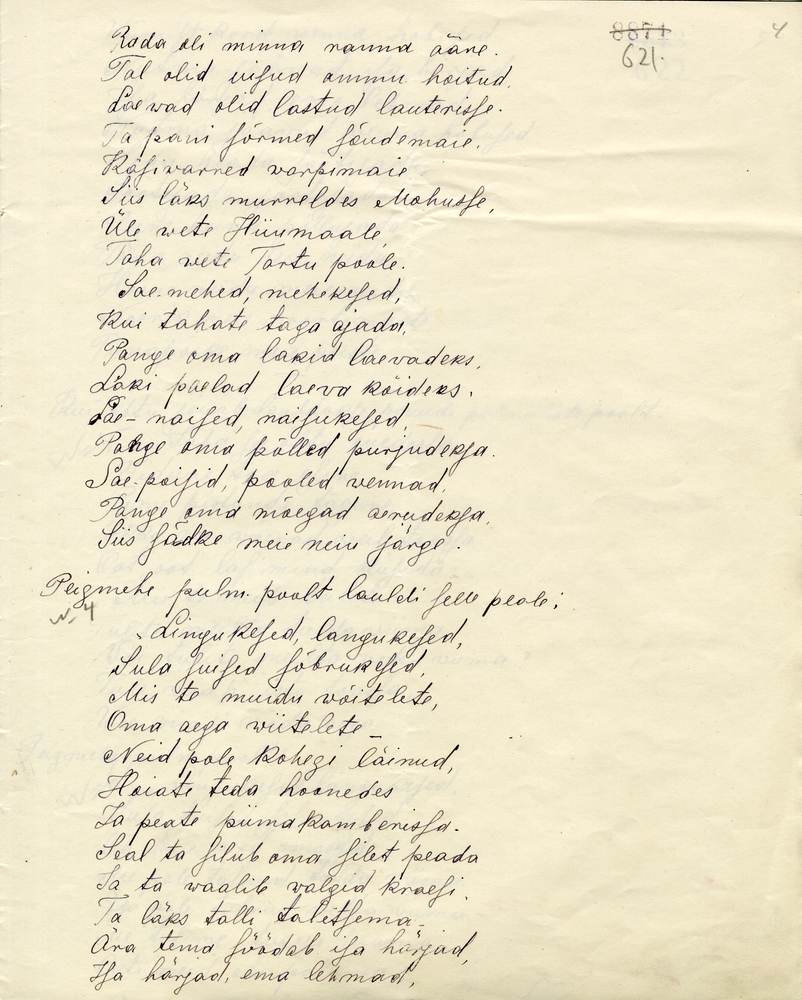 8871 4
621.
Rada oli minna ranna ääre.
Tal olid uisud ammu hoitud,
Laewad olid lastud lauterisse.
Ta pani sõrmed sõudemaie,
Käsivarred warpimaie
Siis läks murreldes Mohusse,
Üle wete Hiiumaale,
Taha wete Tartu poole.
Sae-mehed, mehekesed,
Kui tahate taga ajada,
Pange oma lakid laevadeks,
Laki paelad laeva köideks.
Sae-naised, naisukesed,
Pange oma põlled purjudeksa.
Sae-poisid, pooled vennad,
Pange oma mõegad aerudeksa,
Siis sõdke meie neiu järge.
Peigmehe pulm. poolt lauldi selle peale:
N. 4
Lingukesed, langukesed,
Sula suised sõbrukesed,
Mis te muidu võitelete,
Oma aega wiitelete –
Neid pole kohegi läinud,
Hoiate teda hoonedes
Ja peate piimakamberissa.
Seal ta silub oma silet peada
Ja ta waalib valgid kraesi.
Ta läks talli talitsema –
Ära tema söödab isa härjad,
Isa härjad, ema lehmad,